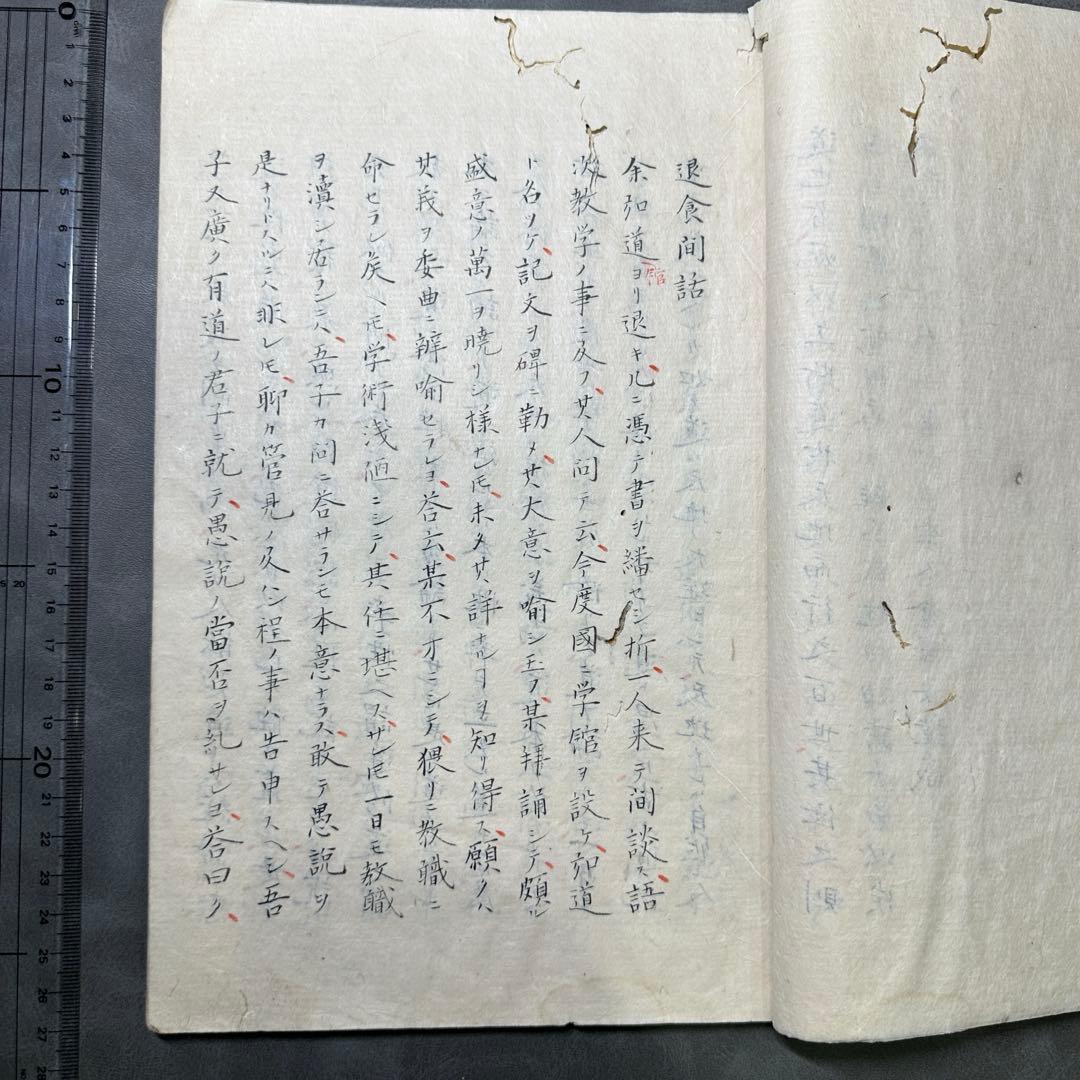 退食間話
余弘道館ヨリ退キ、几ニ憑テ書ヲ繙セシ折、一人来テ間談ス、語
次教学ノ事ニ及フ、其人問テ云、今度國ニ学館ヲ設ケ、弘道
ト名ツケ、記文ヲ碑ニ勒メ、其大意ヲ喻シ玉フ、某拜誦シテ、頗ル
盛意ノ萬一ヲ曉リシ様ナレ𪜈、未タ其詳ナルヿヲ知リ得ス、願クハ
其義ヲ委曲ニ辨喻セラレヨ、答云、某不才ニシテ、猥リニ教職ニ
命セラレ矦ヘ𪜈、学術浅陋ニシテ、其任ニ堪ヘス、サレ𪜈一日モ教職
ヲ瀆シ居ランニハ、吾子カ問ニ答サランモ本意ナラス、敢テ愚説ヲ
是ナリトスルニハ非レ𪜈、聊カ管見ノ及ハン程ノ事ハ告申スヘシ、吾
子又廣ク有道ノ君子ニ就テ、愚説ノ當否ヲ乱サレヨ、答曰ク、
0
1
2
3
4
5
6
7
8
9
10
11
12
13
14
15
16
17
18
19
20
21
22
23
24
25
26
27
28